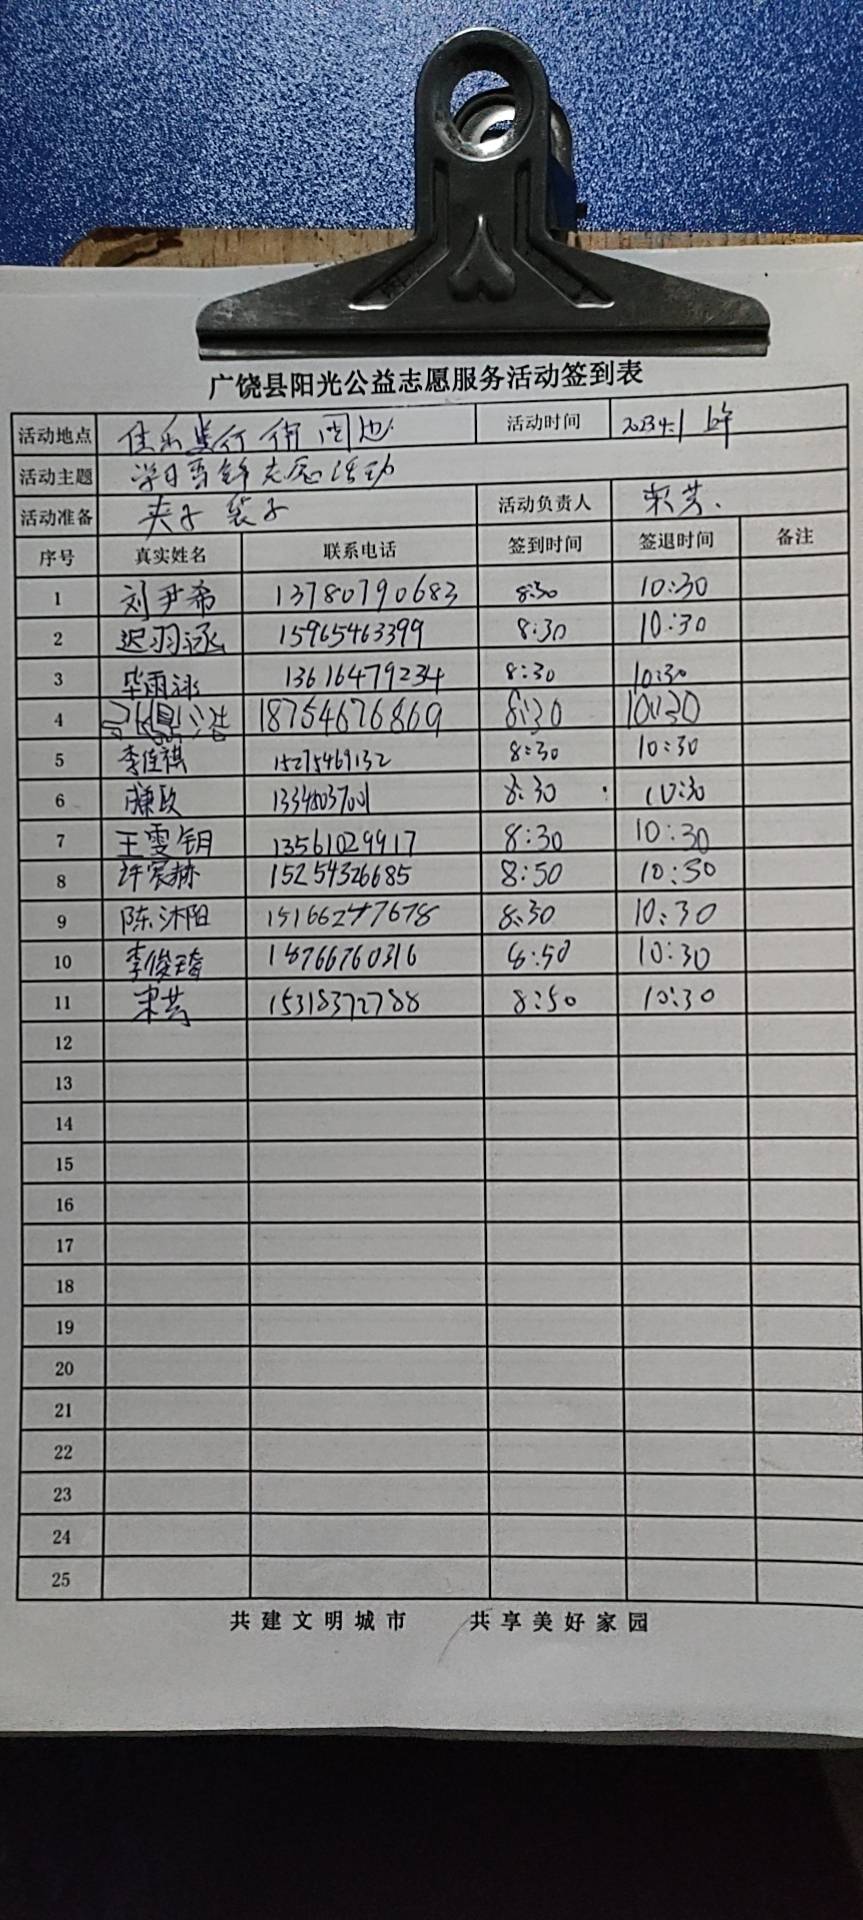 广饶县阳光公益志愿服务活动签到表
活动地点 佳乐 步行街周边 活动时间 2023.4.1 上午
活动主题 学习雷锋志愿活动
活动准备 夹子 袋子 活动负责人 宋芸.
序号 真实姓名 联系电话 签到时间 签退时间 备注
1 刘尹希 13780790683 8:30 10:30
2 迟羽涵 15965463399 8:30 10:30
3 毕雨泳 13616479234 8:30 10:30
4 18754676869 8:30 10:30
5 李佳祺 15275469132 8:30 10:30
6 13348037001 8:30 10:30
7 王雯钥 13561029917 8:30 10:30
8 许宸赫 15254326685 8:50 10:30
9 陈沐阳 15166247678 8:30 10:30
10 李俊琦 18766760316 8:50 10:30
11 宋芸 15318372788 8:50 10:30
12
13
14
15
16
17
18
19
20
21
22
23
24
25
共建文明城市 共享美好家园